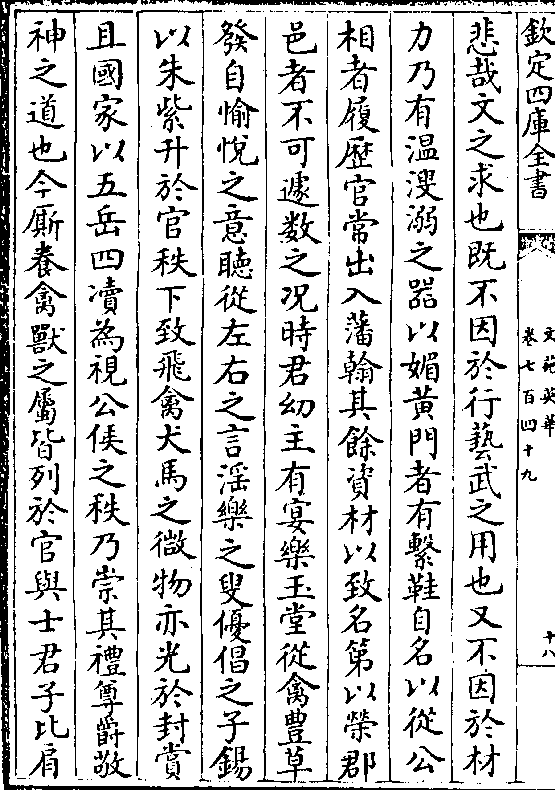 欽定四庫全書
文苑英華
卷七百四十九
十八
悲哉文之求也既不因於行藝武之用也又不因於材
力乃有温溲溺之器以媚黃門者有繫鞋自名以從公
相者履歷官常出入藩翰其餘資材以致名第以榮郡
邑者不可遽数之况時君幼主有宴樂玉堂從禽豊草
發自愉悅之意聽從左右之言淫樂之叟優倡之子錫
以朱紫升於官秩下致飛禽犬馬之微物亦光於封賞
且國家以五岳四瀆為視公侯之秩乃崇其禮尊爵敬
神之道也今厮養禽獸之屬皆列於官與士君子比肩